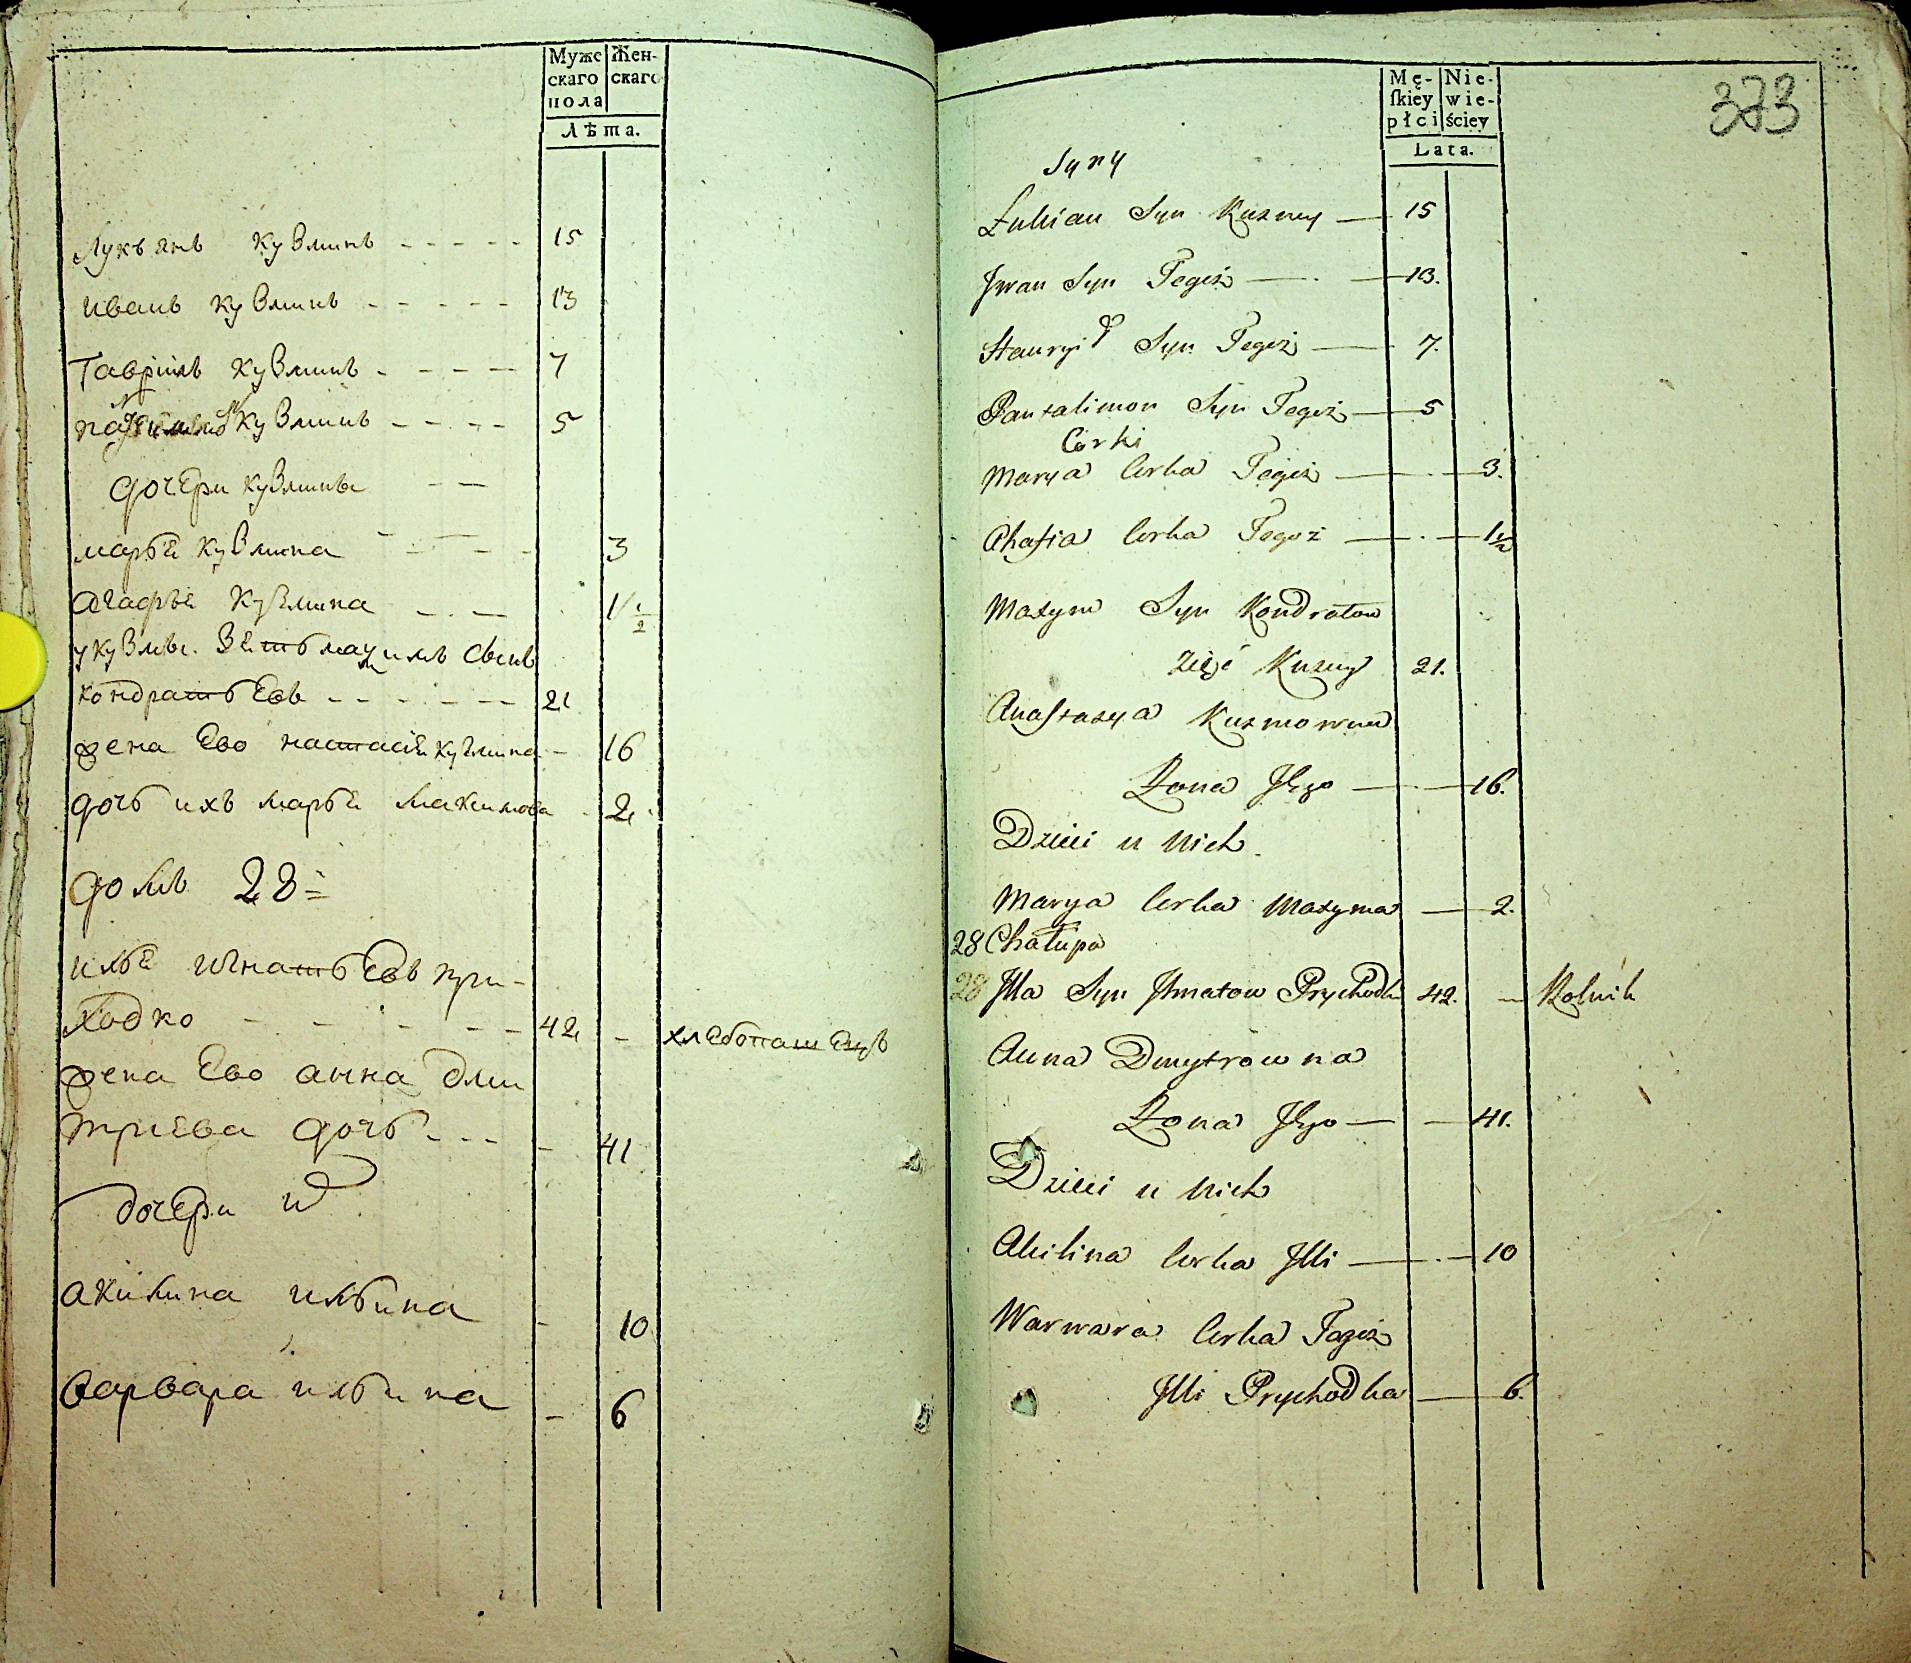 Муже Жен-
скаго скаго
пола
Лѣта.
Лукъянъ кузминъ - - - - - 15
иванъ кузминъ - - - - - 13
Гаврiилъ кузминъ - - - - - 7
кузминъ - - - - 5
дочери кузмины - -
марьѣ кузмина - - - - 3
агафьѣ кузмина - - - 1 1/2
у кузмы. зеть максимъ сынъ
кондратьевъ - - - - - - 21
жена ево настасiѣ кузмина - 16
дочь ихъ марьѣ максимова - 2
домъ 28 =
ильѣ игнатьевъ при-
ходко - - - - - 42 - хлебопашецъ
жена ево анна дми
триева дочь - - - - 41
дочери их
акилина ильина - 10
варвара ильина - 6
373
Mę- Nie-
skiey wie-
płci ściey
Lata.
Syny
Łukian Syn Kuzmy — 15
Jwan Syn Tegoż — 13.
Hauryił Syn Tegoż — 7.
Pantalimon Syn Tegoż — 5
Córki
Marya Corka Tegoż — 3.
Ahafia Corka Tegoż — 1 1/2
Maxym Syn Kondratow
Zięć Kuzmy 21.
Anastazya Kuzmowna
Żona Jego — 16.
Dzieci u nich
Marya Corka Maxyma — 2.
28 Chałupa
28 Jlla Syn Jhnatow Prychodk 42. — Rolnik
Anna Dmytrowna
Żona Jego — 41.
Dzieci u nich
Akilina Corka Jlli — 10
Warwara Corka Tegoż
Jlli Prychodka — 6.